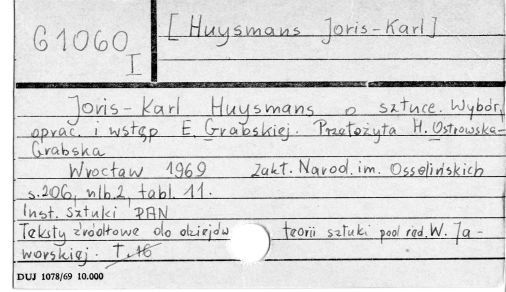 61060
I
[Huysmans Joris-Karl]
Joris-Karl Huysmans o sztuce. Wybór,
oprac. i wstęp E. Grabskiej. Przełożyła H. Ostrowska-
Grabska
Wrocław 1969 Zakł. Narod. im. Ossolińskich
s.206, nlb.2, tabl. 11.
Inst. Sztuki PAN
Teksty źródłowe do dziejów teorii sztuki pod red. W. Ja-
worskiej. T. 16
DUJ 1078/69 10.000